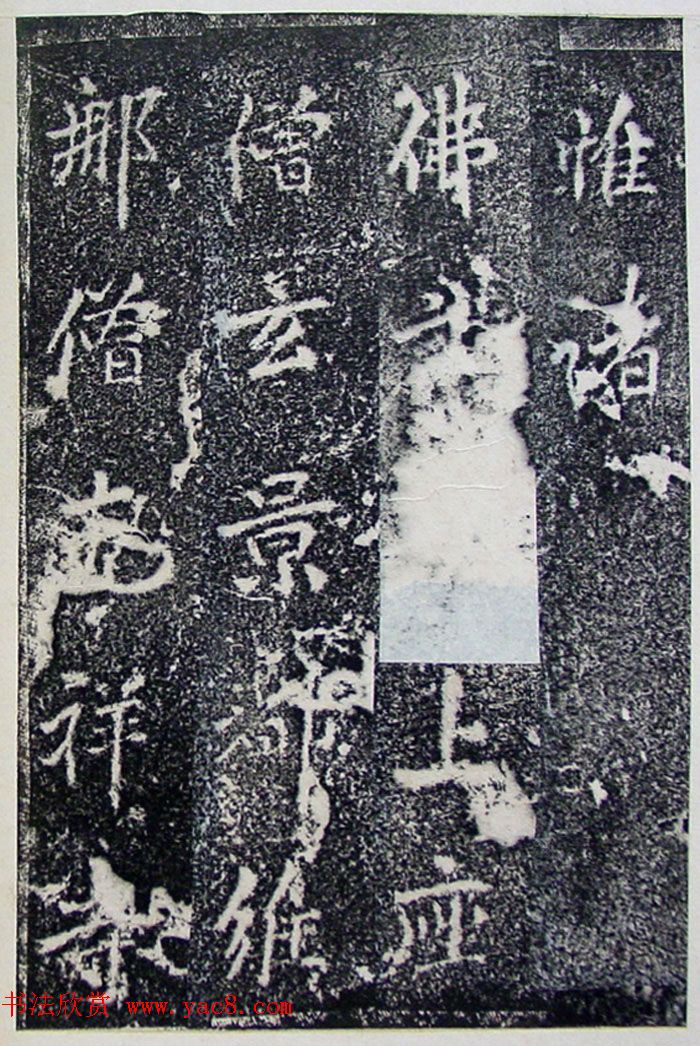 惟諸
佛上座
僧玄景維
那僧祥寺
书法欣赏 www.yac8.com